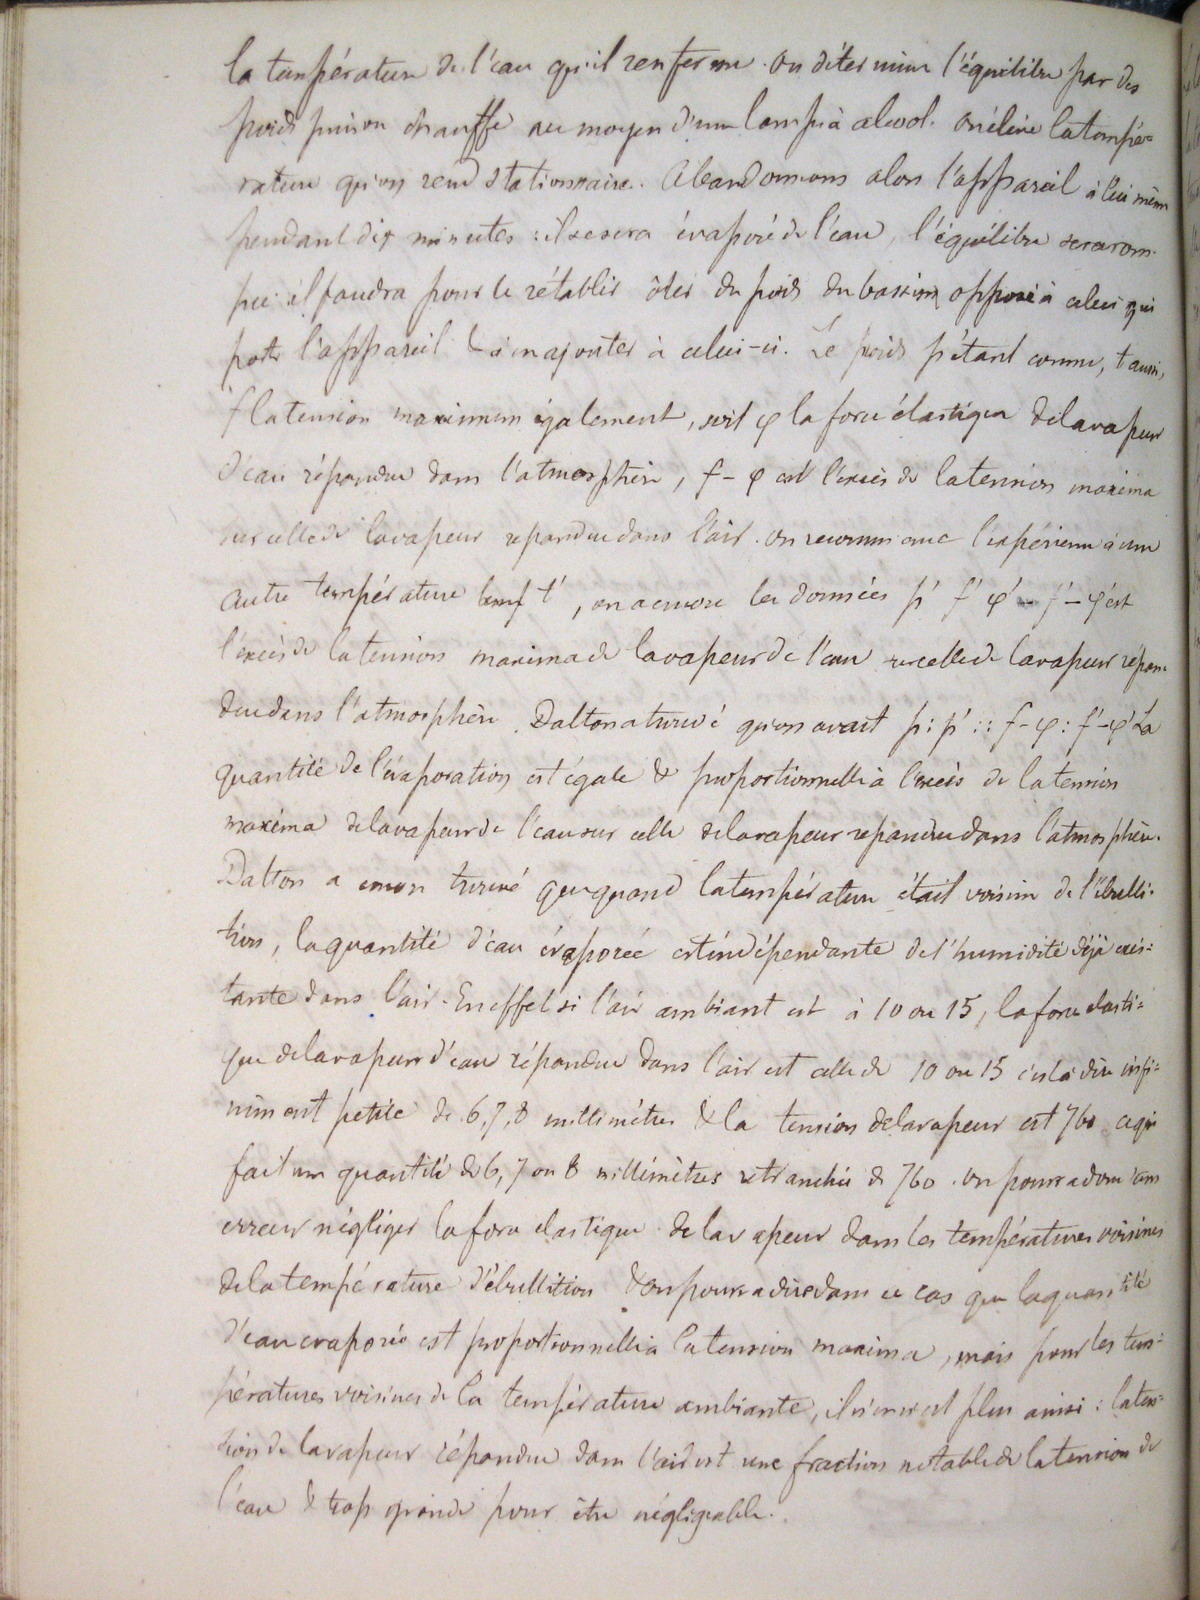 la température de l'eau qu'il renferme. On détermine l'équilibre par des
poids puis on chauffe au moyen d'une lampe à alcool. On élève la tempé=
rature qu'on rend stationnaire. Abandonnons alors l'appareil à lui même
pendant dix minutes : il se sera évaporé de l'eau, l'équilibre sera rom-
pu il faudra pour le rétablir ôter du poids du bassin opposé à celui qui
porte l'appareil & en ajouter à celui-ci. Le poids p étant connu, t aussi,
f la tension maximum également, soit φ la force élastique de la vapeur
d'eau répandue dans l'atmosphère, f - φ est l'excès de la tension maxima
sur celle de la vapeur repandue dans l'air. On recommence l'expérience à une
autre température t', on a encore les données p' f' φ' - f' - φ' est
l'excès de la tension maxima de la vapeur de l'eau sur celle de la vapeur répan
due dans l'atmosphère. Dalton a trouvé qu'on avait p : p' :: f - φ : f' - φ' La
quantité de l'évaporation est égale & proportionnelle à l'excès de la tension
maxima de la vapeur de l'eau sur celle de la vapeur repandue dans l'atmosphère.
Dalton a encore trouvé que quand la température était voisine de l'ébulli-
tion, la quantité d'eau évaporée est indépendante de l'humidité déjà exis=
tante dans l'air. En effet si l'air ambiant est à 10 ou 15, la force élasti=
que de la vapeur d'eau répandue dans l'air est celle de 10 ou 15 c'est à dire infi=
niment petite de 6, 7, 8 millimètres & la tension de la vapeur est 760 ce qui
fait une quantité de 6, 7 ou 8 millimètres retranchée de 760. On pourra donc sans
erreur négliger la force élastique de la vapeur dans les températures voisines
de la température d'ébullition & on pourra dire dans ce cas que la quantité
d'eau evaporée est proportionnelle à la tension maxima, mais pour les tem=
pératures voisines de la température ambiante, il n'en est plus ainsi : la ten=
sion de la vapeur répandue dans l'air est une fraction notable de la tension de
l'eau & trop grande pour être négligeable.